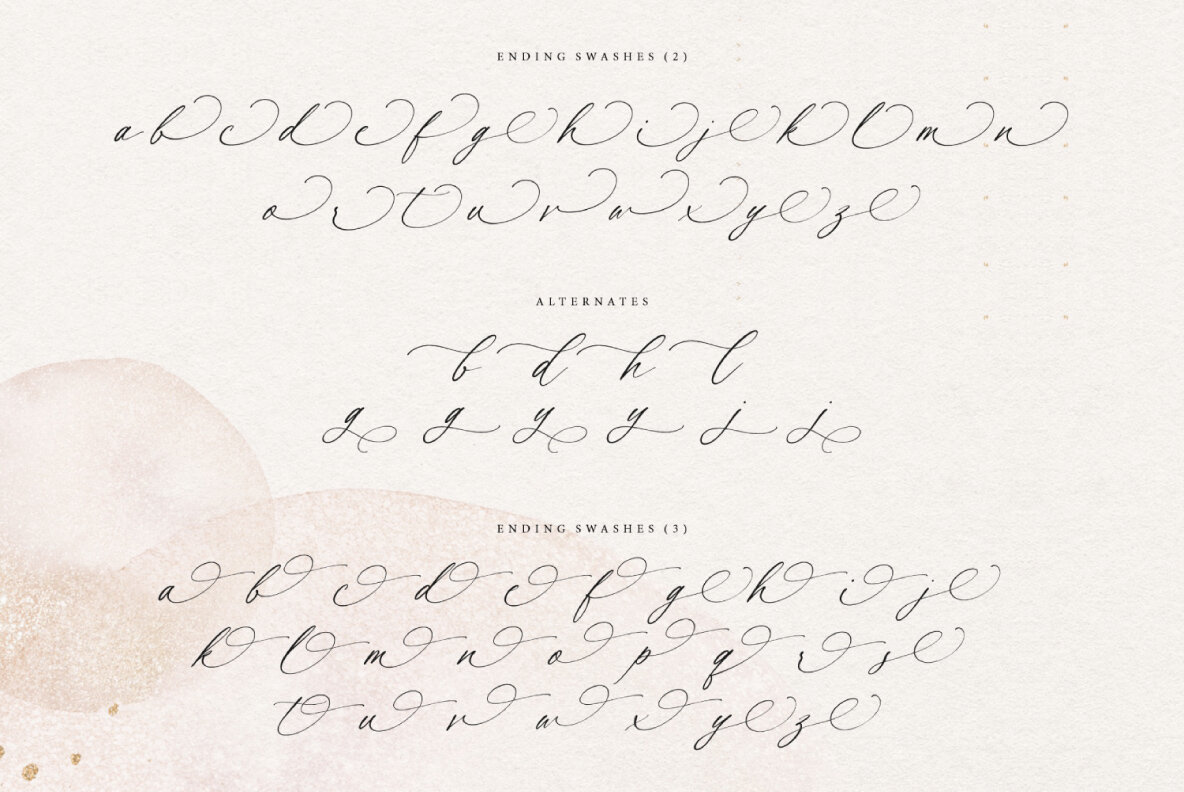 ENDING SWASHES (2)
a b c d e f g h i j k l m n
o r t u v w x y z
ALTERNATES
b d h l
g g y y j j
ENDING SWASHES (3)
a b c d e f g h i j
k l m n o p q r s
t u v w x y z